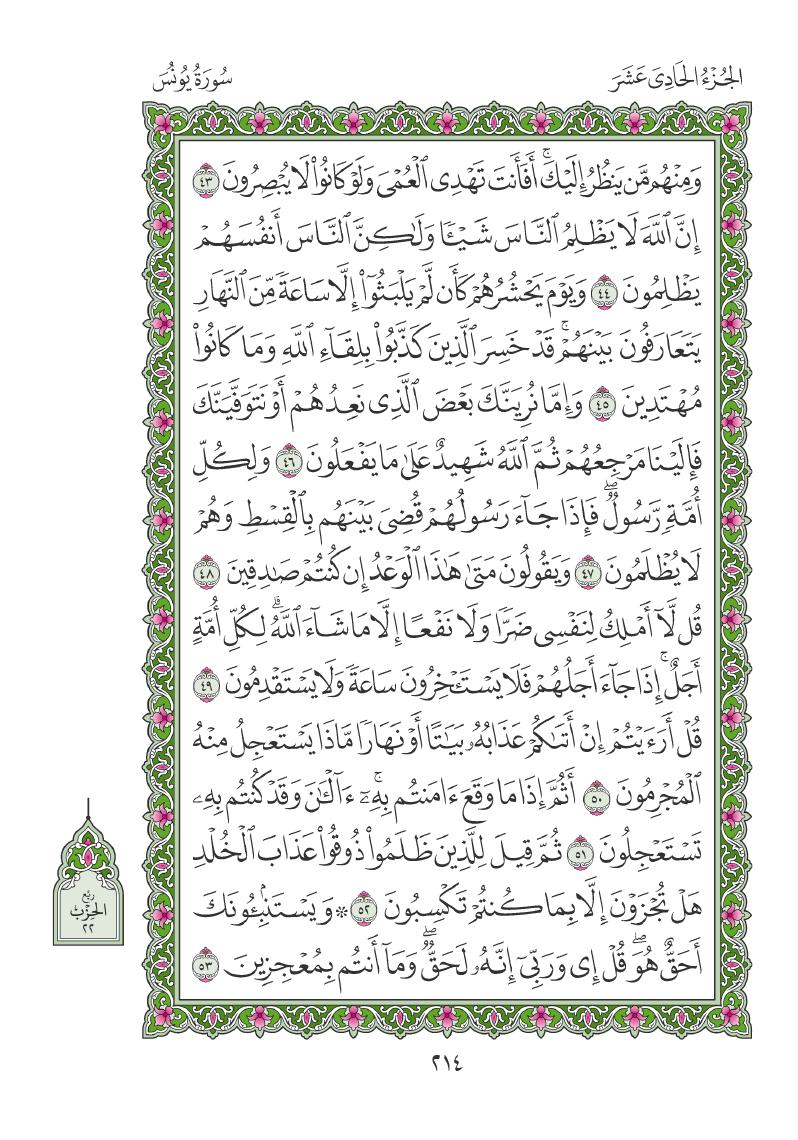 الجُزْءُ الحَادِى عَشَرَ
سُورَةُ يُونُسَ
وَمِنْهُم مَّن يَنظُرُ إِلَيْكَۚ أَفَأَنتَ تَهْدِى ٱلْعُمْىَ وَلَوْ كَانُوا۟ لَا يُبْصِرُونَ ٤٣
إِنَّ ٱللَّهَ لَا يَظْلِمُ ٱلنَّاسَ شَيْـًٔا وَلَـٰكِنَّ ٱلنَّاسَ أَنفُسَهُمْ
يَظْلِمُونَ ٤٤ وَيَوْمَ يَحْشُرُهُمْ كَأَن لَّمْ يَلْبَثُوٓا۟ إِلَّا سَاعَةً مِّنَ ٱلنَّهَارِ
يَتَعَارَفُونَ بَيْنَهُمْۚ قَدْ خَسِرَ ٱلَّذِينَ كَذَّبُوا۟ بِلِقَآءِ ٱللَّهِ وَمَا كَانُوا۟
مُهْتَدِينَ ٤٥ وَإِمَّا نُرِيَنَّكَ بَعْضَ ٱلَّذِى نَعِدُهُمْ أَوْ نَتَوَفَّيَنَّكَ
فَإِلَيْنَا مَرْجِعُهُمْ ثُمَّ ٱللَّهُ شَهِيدٌ عَلَىٰ مَا يَفْعَلُونَ ٤٦ وَلِكُلِّ
أُمَّةٍ رَّسُولٌۖ فَإِذَا جَآءَ رَسُولُهُمْ قُضِىَ بَيْنَهُم بِٱلْقِسْطِ وَهُمْ
لَا يُظْلَمُونَ ٤٧ وَيَقُولُونَ مَتَىٰ هَـٰذَا ٱلْوَعْدُ إِن كُنتُمْ صَـٰدِقِينَ ٤٨
قُل لَّآ أَمْلِكُ لِنَفْسِى ضَرًّا وَلَا نَفْعًا إِلَّا مَا شَآءَ ٱللَّهُۗ لِكُلِّ أُمَّةٍ
أَجَلٌۚ إِذَا جَآءَ أَجَلُهُمْ فَلَا يَسْتَـْٔخِرُونَ سَاعَةً وَلَا يَسْتَقْدِمُونَ ٤٩
قُلْ أَرَءَيْتُمْ إِنْ أَتَىٰكُمْ عَذَابُهُۥ بَيَـٰتًا أَوْ نَهَارًا مَّاذَا يَسْتَعْجِلُ مِنْهُ
ٱلْمُجْرِمُونَ ٥٠ أَثُمَّ إِذَا مَا وَقَعَ ءَامَنتُم بِهِۦٓۚ ءَآلْـَٔـٰنَ وَقَدْ كُنتُم بِهِۦ
تَسْتَعْجِلُونَ ٥١ ثُمَّ قِيلَ لِلَّذِينَ ظَلَمُوا۟ ذُوقُوا۟ عَذَابَ ٱلْخُلْدِ
هَلْ تُجْزَوْنَ إِلَّا بِمَا كُنتُمْ تَكْسِبُونَ ٥٢ ۞ وَيَسْتَنۢبِـُٔونَكَ
أَحَقٌّ هُوَۖ قُلْ إِى وَرَبِّىٓ إِنَّهُۥ لَحَقٌّۖ وَمَآ أَنتُم بِمُعْجِزِينَ ٥٣
رُبْع
الحِزْبِ
٢٢
٢١٤